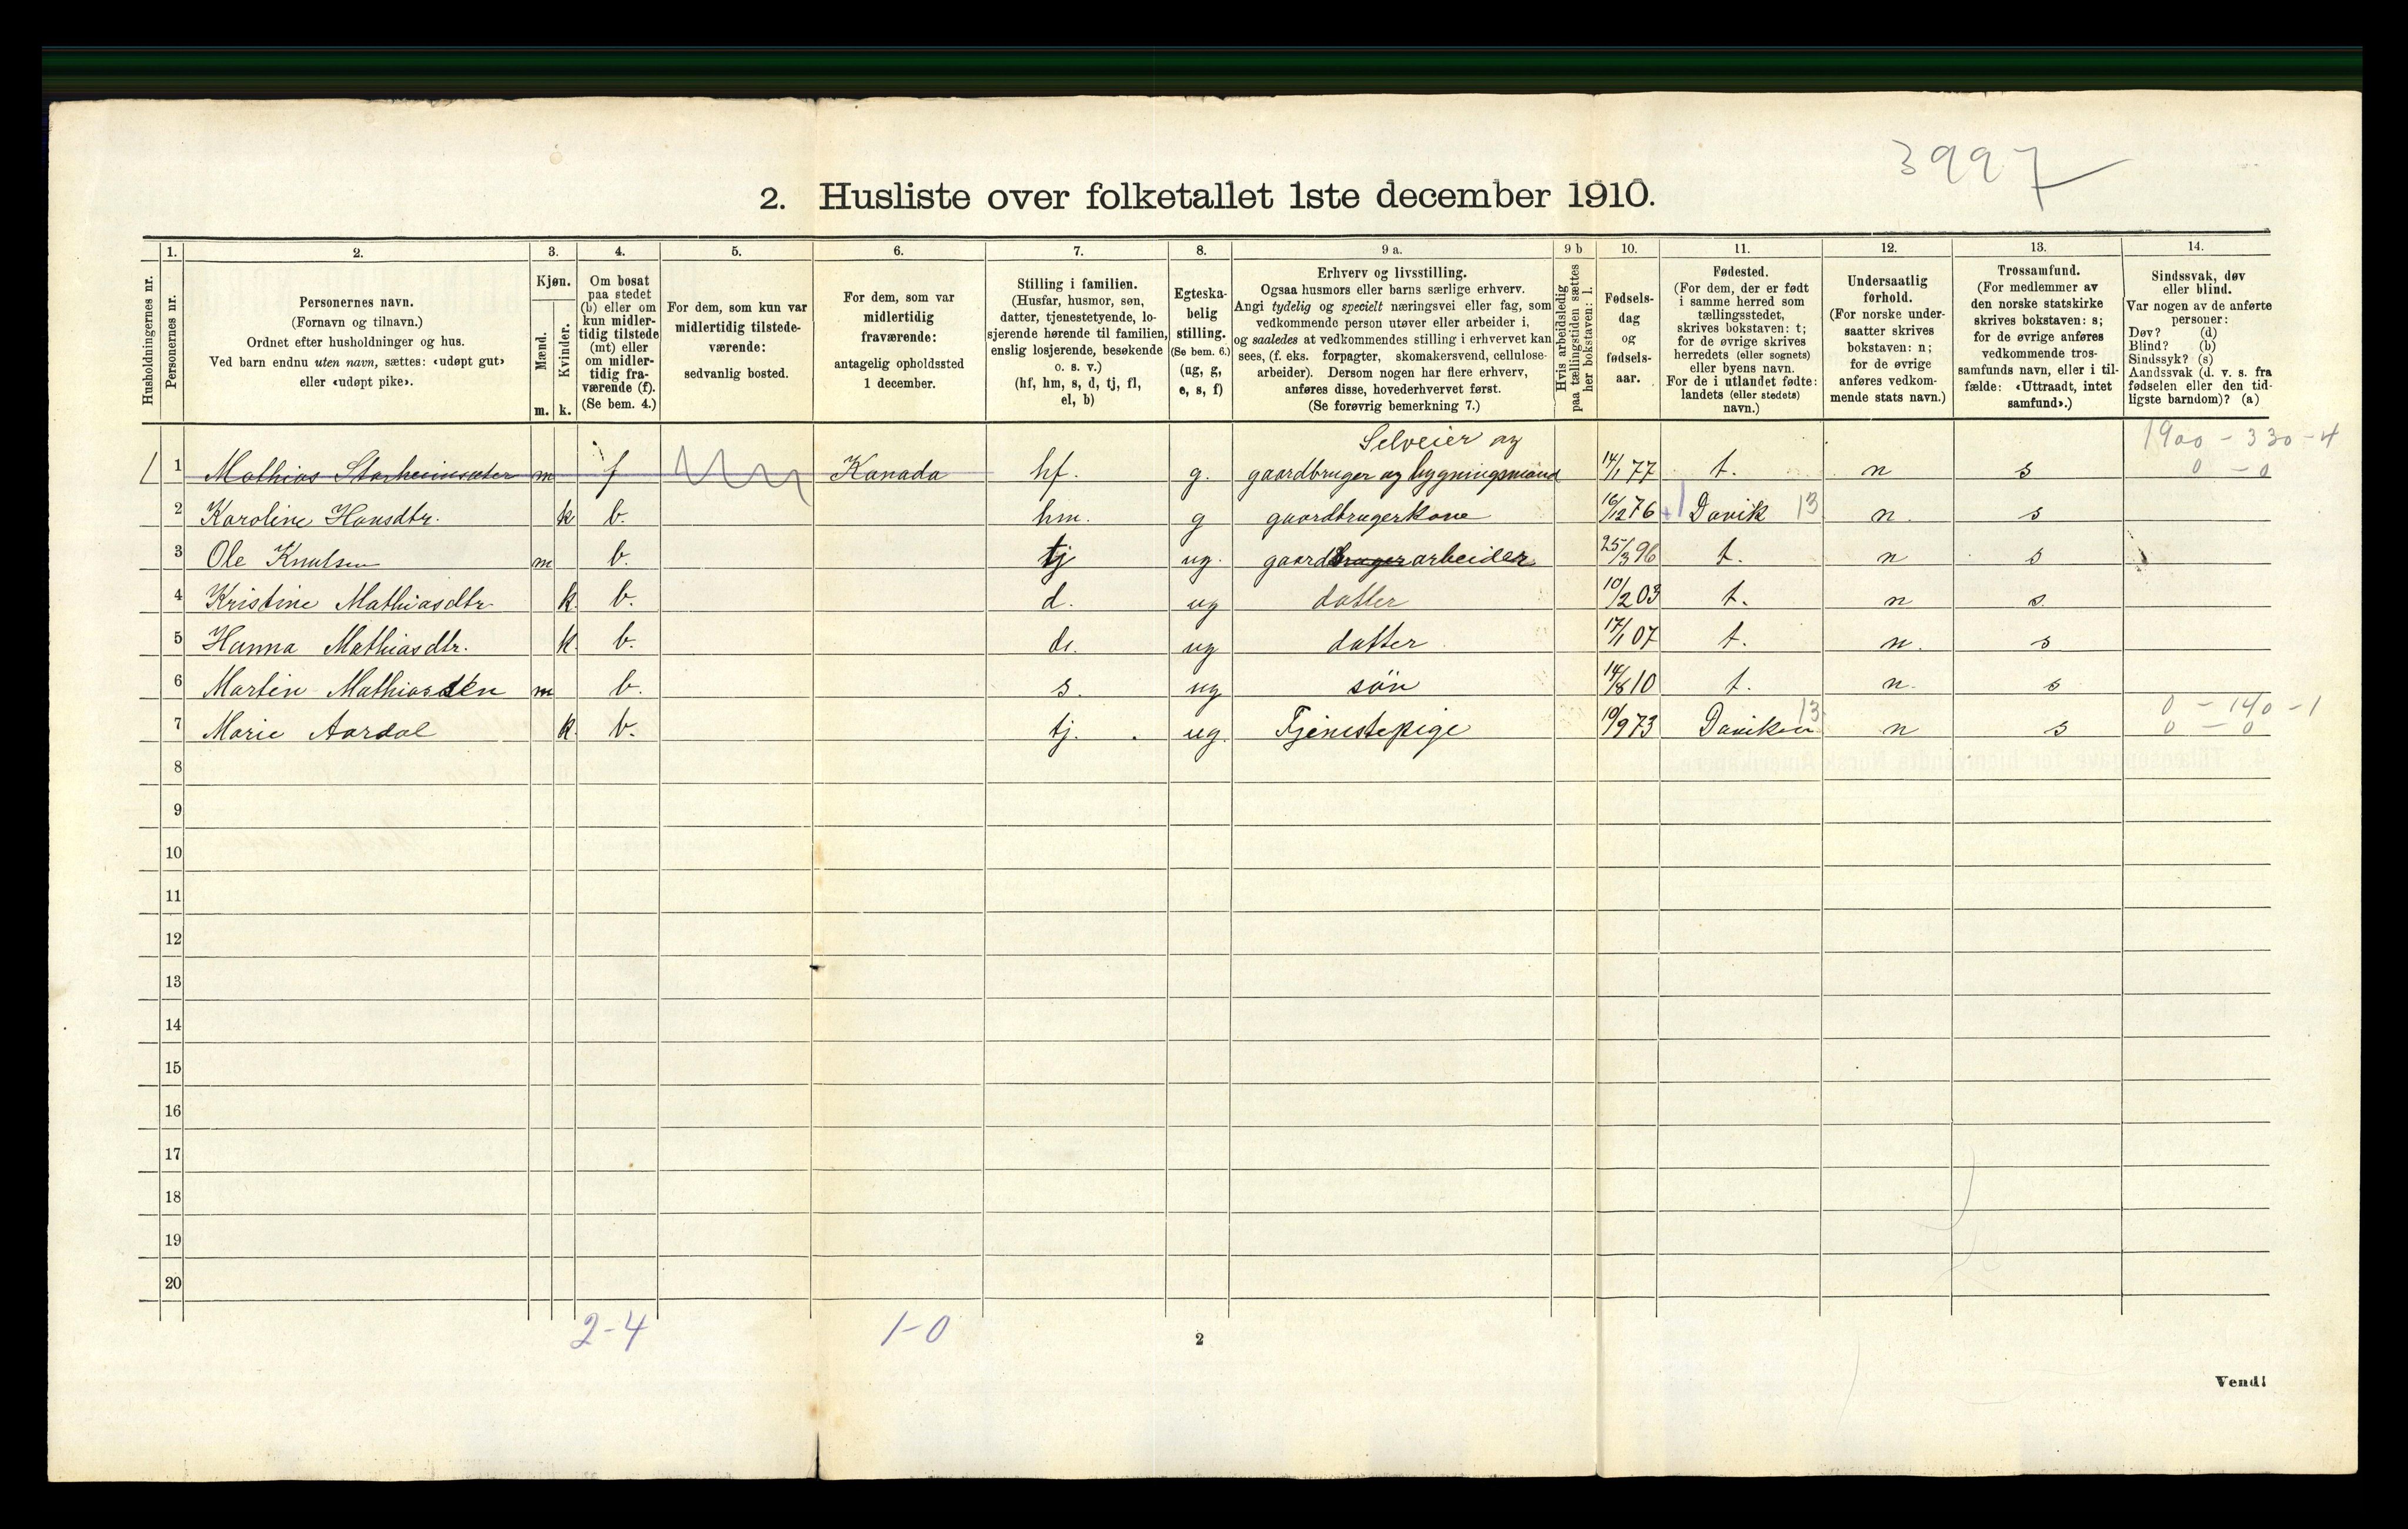 3997
2. Husliste over folketallet 1ste december 1910.
Husholdningernes nr.
1.
Personernes nr.
2.
Personernes navn.
(Fornavn og tilnavn.)
Ordnet efter husholdninger og hus.
Ved barn endnu uten navn, sættes: «udøpt gut»
eller «udøpt pike».
3.
Kjøn.
Mænd.
Kvinder.
m. k.
4.
Om bosat
paa stedet
(b) eller om
kun midler-
tidig tilstede
(mt) eller
om midler-
tidig fra-
værende (f).
(Se bem. 4.)
5.
For dem, som kun var
midlertidig tilstede-
værende:
sedvanlig bosted.
6.
For dem, som var
midlertidig
fraværende:
antagelig opholdssted
1 december.
7.
Stilling i familien.
(Husfar, husmor, søn,
datter, tjenestetyende, lo-
sjerende hørende til familien,
enslig losjerende, besøkende
o. s. v.)
(hf, hm, s, d, tj, fl,
el, b)
8.
Egteska-
belig
stilling.
(Se bem. 6.)
(ug, g,
e, s, f)
9 a.
Erhverv og livsstilling.
Ogsaa husmors eller barns særlige erhverv.
Angi tydelig og specielt næringsvei eller fag, som
vedkommende person utøver eller arbeider i,
og saaledes at vedkommendes stilling i erhvervet kan
sees, (f. eks. forpagter, skomakersvend, cellulose-
arbeider). Dersom nogen har flere erhverv,
anføres disse, hovederhvervet først.
(Se forøvrig bemerkning 7.)
9 b
Hvis arbeidsledig
paa tællingstiden sættes
her bokstaven: l.
10.
Fødsels-
dag
og
fødsels-
aar.
11.
Fødested.
(For dem, der er født
i samme herred som
tællingsstedet,
skrives bokstaven: t;
for de øvrige skrives
herredets (eller sognets)
eller byens navn.
For de i utlandet fødte:
landets (eller stedets)
navn.)
12.
Undersaatlig
forhold.
(For norske under-
saatter skrives
bokstaven: n;
for de øvrige
anføres vedkom-
mende stats navn.)
13.
Trossamfund.
(For medlemmer av
den norske statskirke
skrives bokstaven: s;
for de øvrige anføres
vedkommende tros-
samfunds navn, eller i til-
fælde: «Uttraadt, intet
samfund».)
14.
Sindssvak, døv
eller blind.
Var nogen av de anførte
personer:
Døv? (d)
Blind? (b)
Sindssyk? (s)
Aandssvak (d. v. s. fra
fødselen eller den tid-
ligste barndom)? (a)
Selveier og 1900 - 330 - 4
1 1 Mathias Starheimsæter m f Kanada hf. g. gaardbruger og bygningsmand 14/1 77 t. n s 0 - 0
2 Karoline Hansdtr. k b. hm. g gaardbrugerkone 16/12 76 Davik 13 n. s
3 Ole Knutsen m b. tj ug. gaardbruger arbeider 25/3 96 t. n s
4 Kristine Mathiasdtr k b. d. ug datter 10/2 03 t. n s.
5 Hanna Mathiasdtr. k b. d. ug datter 17/1 07 t. n. s
6 Martin Mathiassen m b. s. ug søn 14/8 10 t. n. s
0 - 140 - 1
7 Marie Aardal k b. tj. ug. Tjenestepige 10/9 73 Daviken 13 n s 0 - 0
8
9
10
11
12
13
14
15
16
17
18
19
20
2-4 1-0
2
Vend!